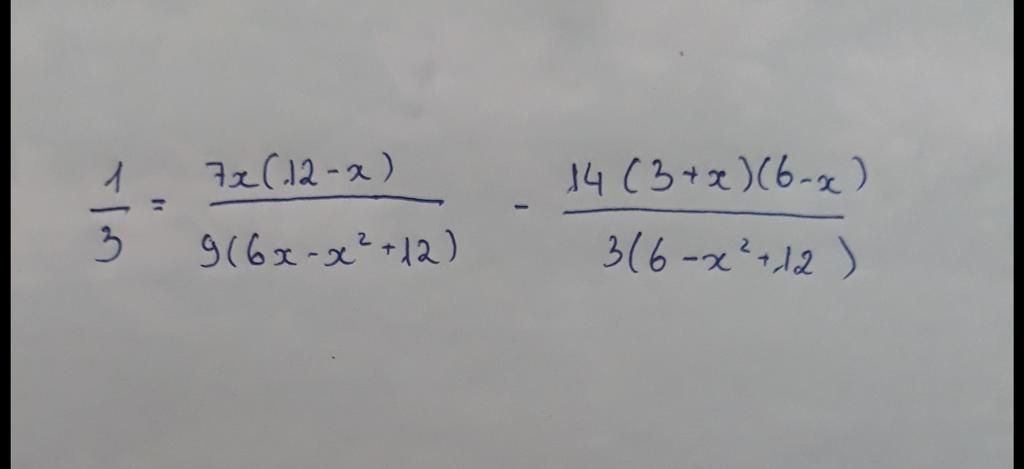 1/3 = 7x(12-x)/9(6x-x²+12) - 14(3+x)(6-x)/3(6-x²+12)